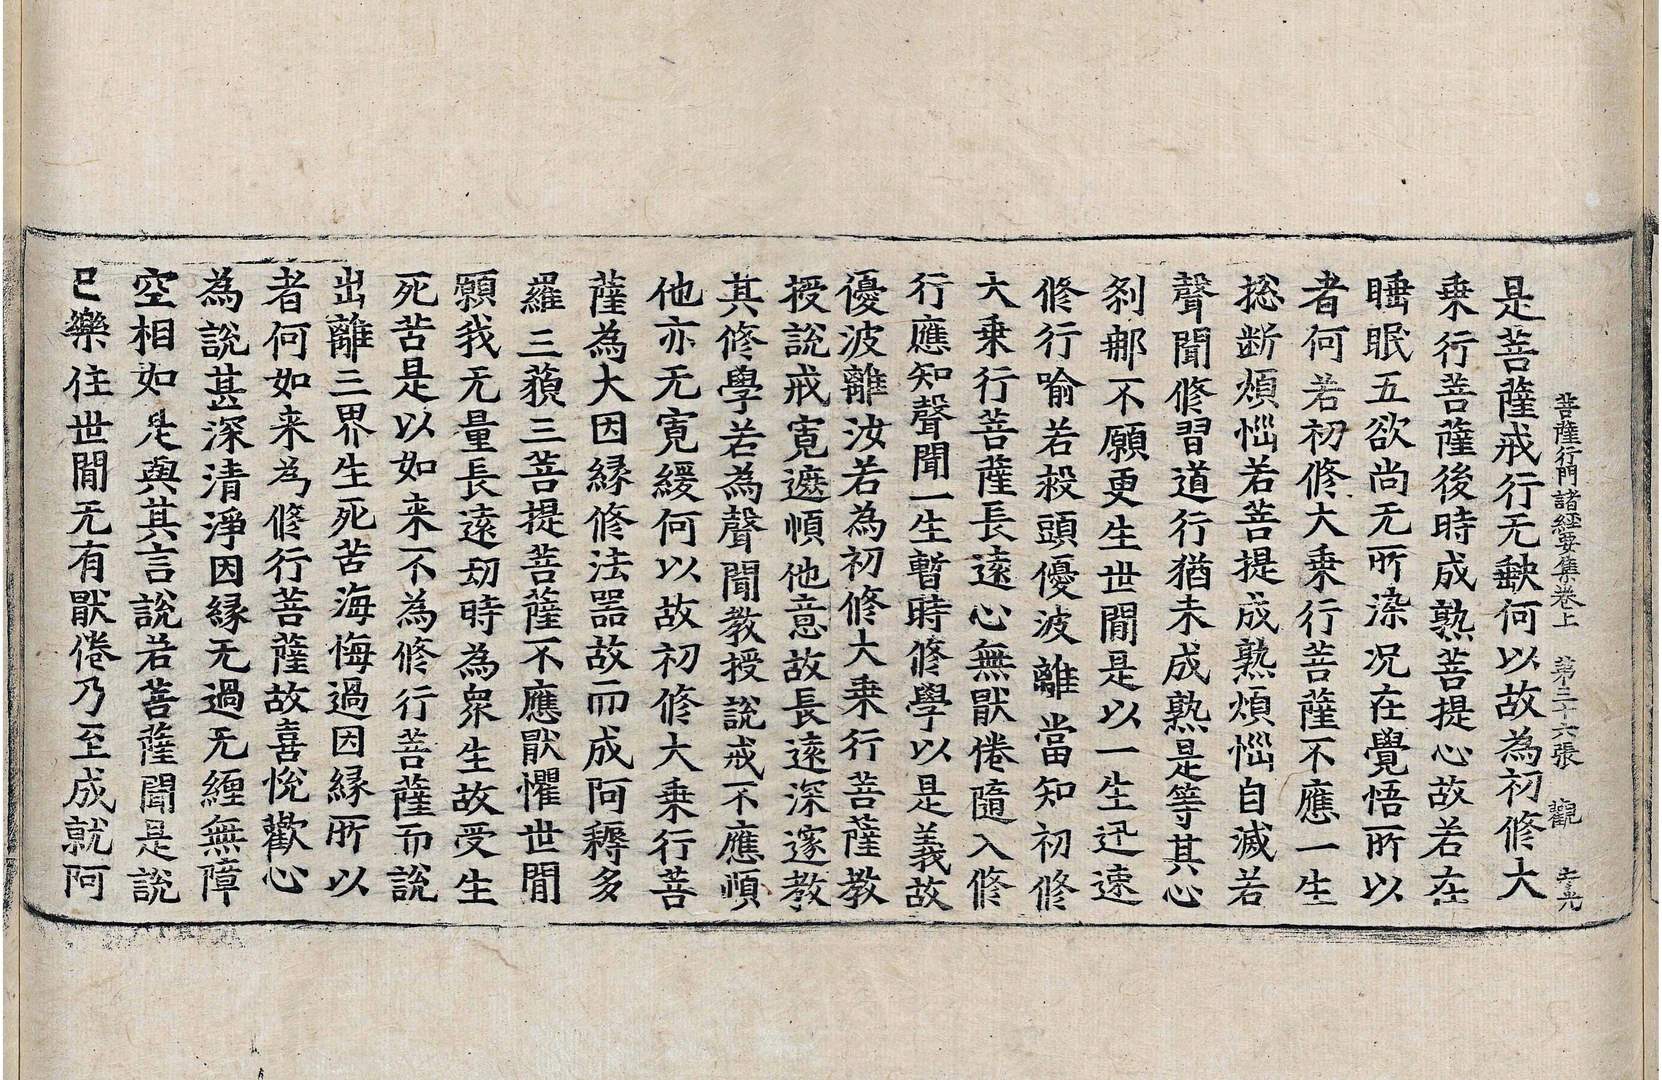 菩薩行門諸經要集卷上 第三十六張 觀 光
是菩薩戒行无缺何以故為初修大
乗行菩薩後時成熟菩提心故若在
睡眠五欲尚无所染况在覺悟所以
者何若初修大乗行菩薩不應一生
捴断煩惱若菩提成熟煩惱自滅若
聲聞修習道行猶未成熟是等其心
刹那不願更生世間是以一生迅速
修行喻若救頭優波離當知初修
大乗行菩薩長遠心無猒倦隨入修
行應知聲聞一生暫時修學以是義故
優波離汝若為初修大乗行菩薩教
授說戒寛遮順他意故長遠深邃教
其修學若為聲聞教授說戒不應順
他亦无寛緩何以故初修大乗行菩
薩為大因縁修法器故而成阿耨多
羅三藐三菩提菩薩不應猒懼世間
願我无量長遠劫時為衆生故受生
死苦是以如来不為修行菩薩而說
出離三界生死苦海悔過因縁所以
者何如来為修行菩薩故喜悅歡心
為說甚深清淨因縁无過无纏無障
空相如是與其言說若菩薩聞是說
已樂住世間无有猒倦乃至成就阿